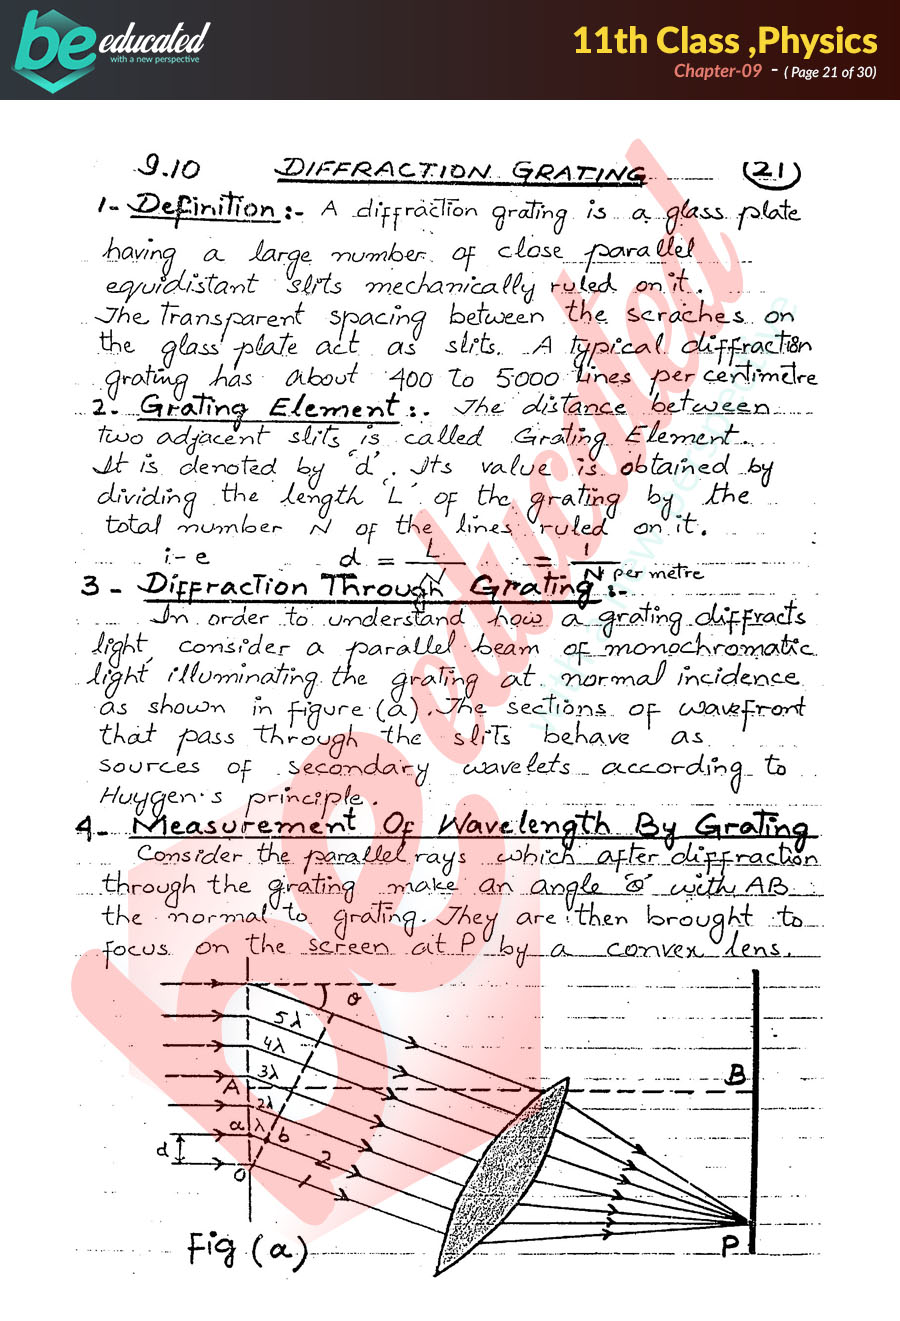 be educated
with a new perspective
11th Class ,Physics
Chapter-09 - ( Page 21 of 30)
9.10 DIFFRACTION GRATING (21)
1- Definition :- A diffraction grating is a glass plate
having a large number of close parallel
equidistant slits mechanically ruled on it.
The Transparent spacing between the scraches on
the glass plate act as slits. A typical diffraction
grating has about 400 to 5000 lines per centimetre
2- Grating Element :. The distance between
two adjacent slits is called Grating Element.
It is denoted by 'd'. Its value is obtained by
dividing the length 'L' of the grating by the
total number N of the lines ruled on it.
i-e d = L/N = 1/N per metre
3- Diffraction Through Grating :-
In order to understand how a grating diffracts
light, consider a parallel beam of monochromatic
light illuminating the grating at normal incidence
as shown in figure (a). The sections of wavefront
that pass through the slits behave as
sources of secondary wavelets according to
Huygen's principle.
4- Measurement Of Wavelength By Grating
Consider the parallel rays which after diffraction
through the grating make an angle 'θ' with AB
the normal to grating. They are then brought to
focus on the screen at P by a convex lens.
θ
5λ
4λ
3λ
A
B
2λ
a λ b
d
2
O
1
P
Fig (a)
be educated
with a new perspective